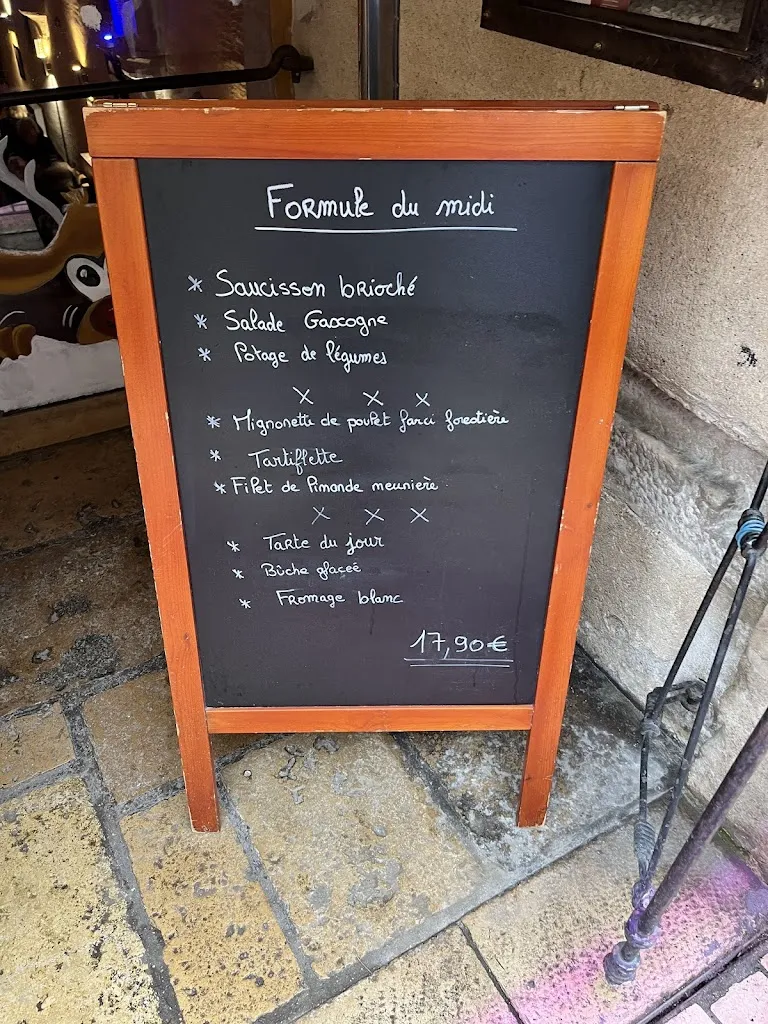 Formule du midi
* Saucisson brioché
* Salade Gascogne
* Potage de légumes
x x x
* Mignonette de poulet farci forestière
* Tartiflette
* Filet de limande meunière
x x x
* Tarte du jour
* Bûche glaceé
* Fromage blanc
17,90€